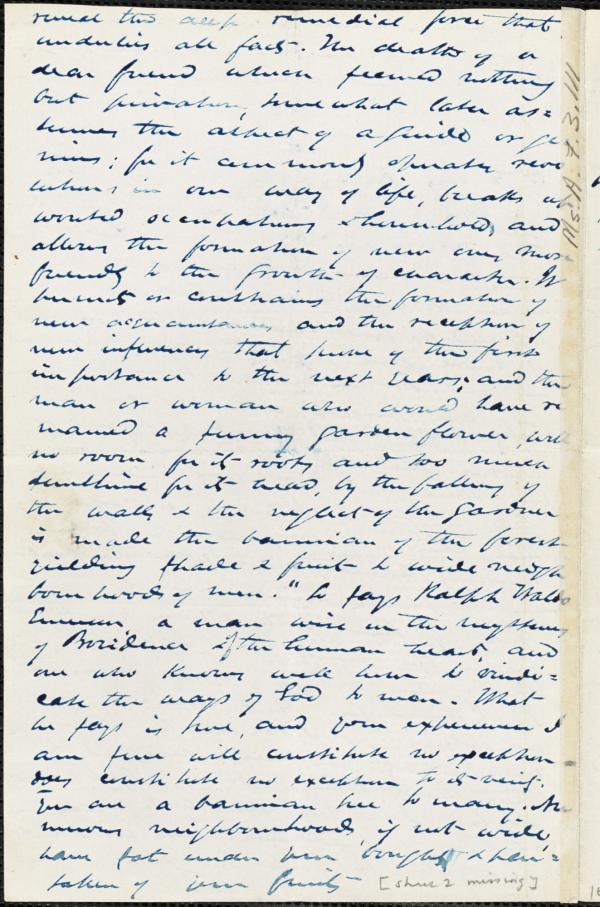 reveal the deep remedial force that
underlies all facts. The death of a
dear friend which seemed nothing
but privation, somewhat later as=
sumes the aspect of a guide or ge
nius; for it commonly operates revo
lutions in our way of life, breaks up
wonted occupations & households and
allows the formation of new ones more
friendly to the growth of character. It
permits or constrains the formation of
new acquaintances and the reception of
new influences that prove of the first
importance to the next years; and the
man or woman who would have re
mained a sunny garden flower, with
no room for its roots and too much
sunshine for its head, by the falling of
the walls & the neglect of the gardner
is made the bannian of the forest
yielding shade & fruit to wide neigh
bourhoods of men." So says Ralph Waldo
Emerson a man wise in the mysteries
of Providence & the human heart, and
one who knows well how to vindi=
cate the ways of God to men. What
he says is true, and your experience I
am sure will constitute no exception
does constitute no exception to its being.
You are a bannian tree to many. Nu
merous neighbourhoods, if not wide,
have sat under your boughs & par=
taken of your fruits [sheet 2 missing]
Ms. A. 9. 3. 111